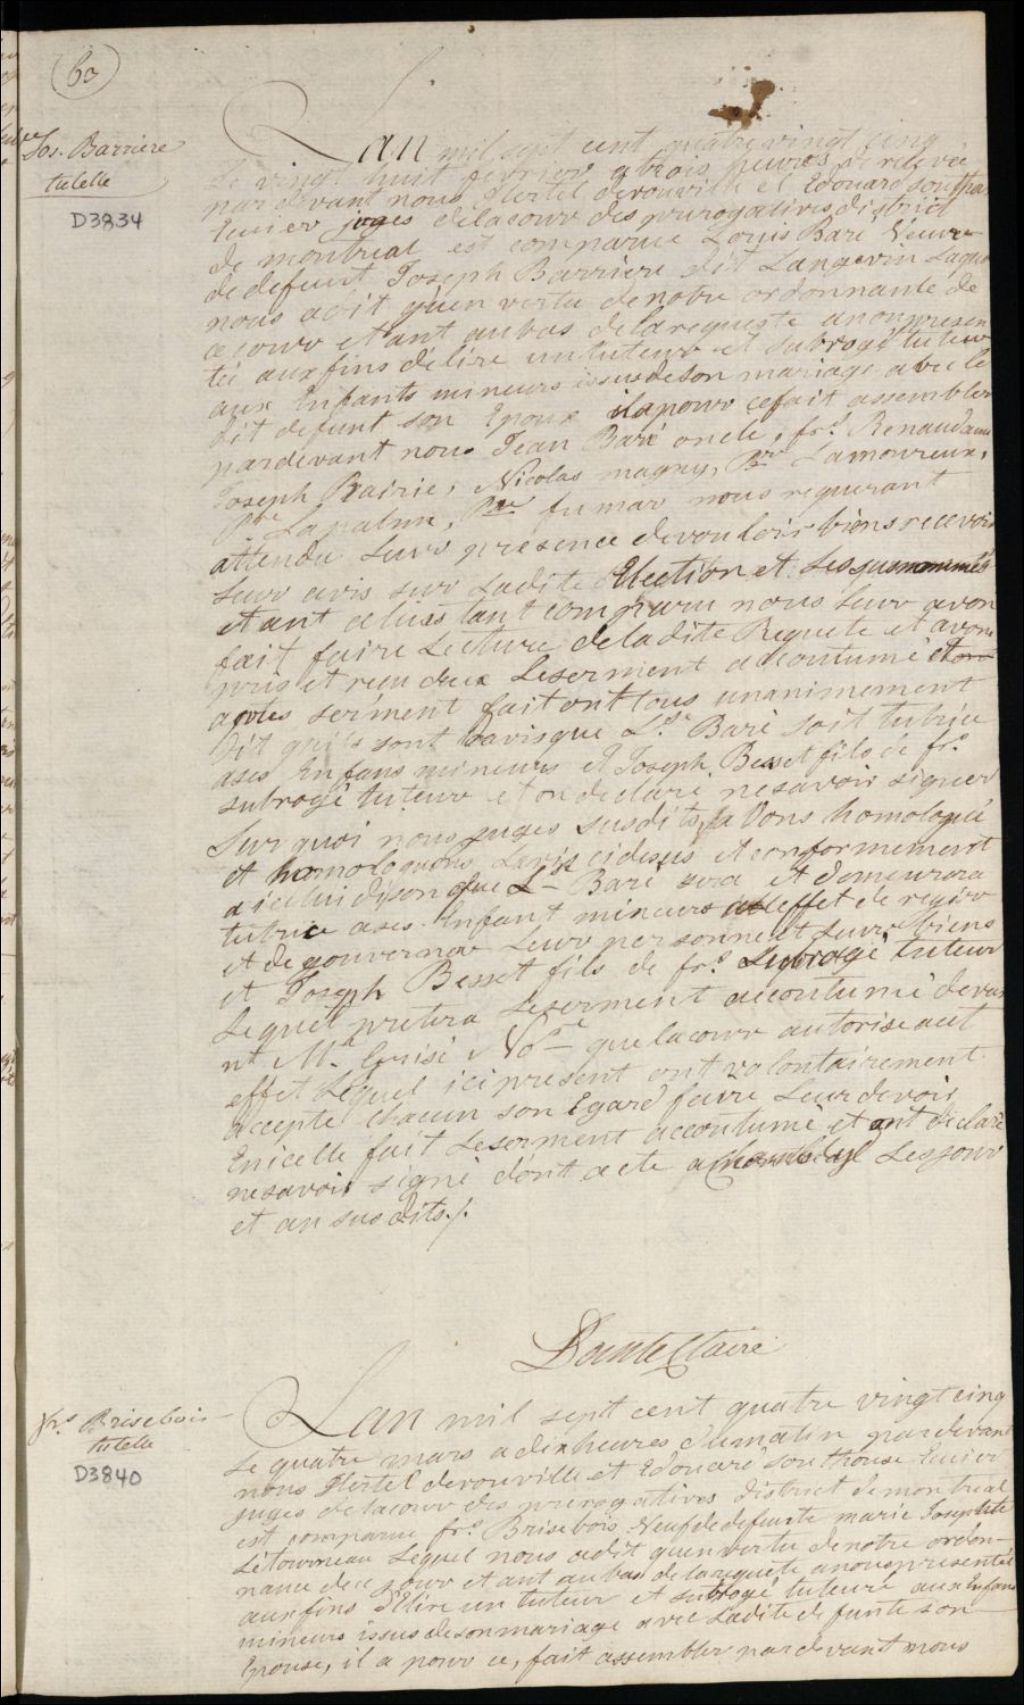 63
Jos. Barriere
tutelle
D3834
Lan mil sept cent quatre vingt cinq
le vingt huit fevrier a trois heures de relevée
par devant nous Hertel derouville et Edouard southou
Ecuier juges delacour des prerogatives district
de montreal est comparue Louis Baré Veuve
de defunt Joseph Barriere dit Langevin Laquel
nous adit quen vertu denotre ordonnance de
ce jour etant aubas delarequeste anous presen
tée aux fins délire un tuteur et subrogé tuteur
aux Enfants mineurs issusdeson mariage avec le
dit defunt son Epoux ilapour cefait assembler
pardevant nous Jean Baré oncle, frs. Renaud ami
Joseph Prairie, Nicolas magny, Lamoureux,
Lapalme, fumar nous requerant
attendu Leur presence devouloir biens recevoir
Leur avis sur Ladite Election et Lessusnommés
etant alinstant comparu nous Leur avon
fait faire Lecture deladite Requete et avons
pris et recu deux Leserment accoutumé et
apres serment fait ont tous unanimement
Dit quils sont davisque Lse Baré soit tutrice
ases Enfans mineurs et Joseph Besset fils de frs.
subrogé tuteur et on declaré nesavoir signer
Sur quoi nous juges susdits, avons homologué
et homologuons Lavis cidesus et conformement
aicelui dison que Lse Baré sera et demeurera
tutrice ases Enfant mineurs aleffet de regir
et de gouverner Leur personne et Leurs biens
et Joseph Besset fils de frs. Subrogé tuteur
Lequel pretera Leserment accoutumé deva
nt Mr. Grisé Nore que lacour autorise acet
effet Lequel ici present ont volontairement
accepte chacun son Egard faire Leur devoir
Enicelle fait Leserment accoutumé et ont declaré
nesavoir signé dont acte a Les jour
et an susdits./.
Pointe Claire
frs Brisebois
tutelle
D3840
Lan mil sept cent quatre vingt cinq
Le quatre mars adixheures dumatin pardevant
nous Hertel derouville et Edouard southouse Ecuier
juges delacour des prerogatives District demontreal
est comparue frs. Brisebois Veuf dedefunte marie Josephte
Létourneau Lequel nous adit quenvertu denotre ordon-
nance dece jour etant aubas delarequete anouspresentée
auxfins DElire un tuteur et subrogé tuteur aux Enfans
mineurs issus desonmariage avec Ladite defunte son
Epouse, il a pour ce, fait assembler pardevant nous